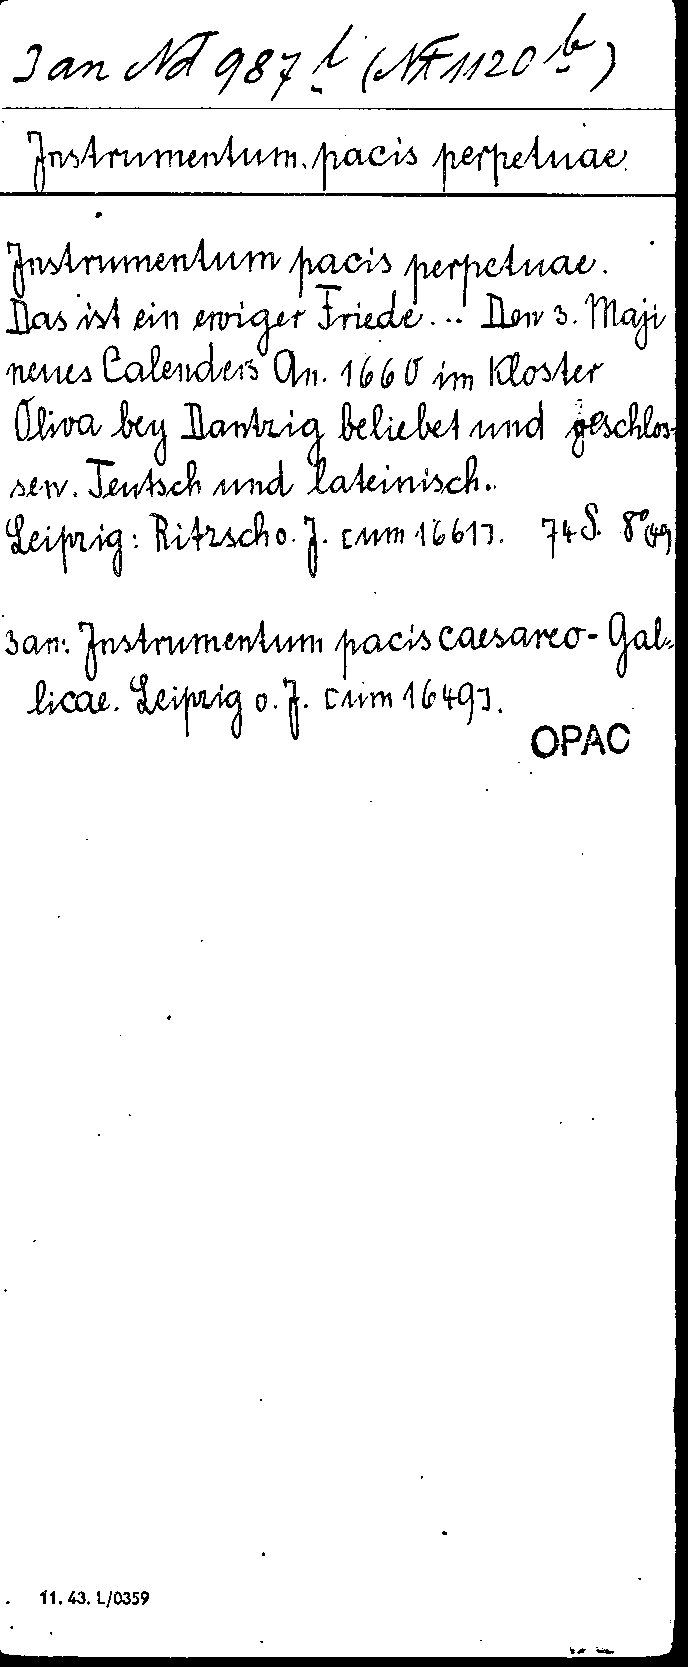 3 an Nd 987 l (NF 1120 b)
Instrumentum pacis perpetuae.
Instrumentum pacis perpetuae.
Das ist ein ewiger Friede... Den 3. Maji
neues Calenders An. 1660 im Kloster
Oliva bey Dantzig beliebet und geschlos-
sen. Teutsch und lateinisch.
Leipzig: Ritzsch o. J. [um 1661]. 74 S. 8°
3 an: Instrumentum pacis caesareo-Gal-
licae. Leipzig o. J. [um 1649].
OPAC
11. 43. L/0359